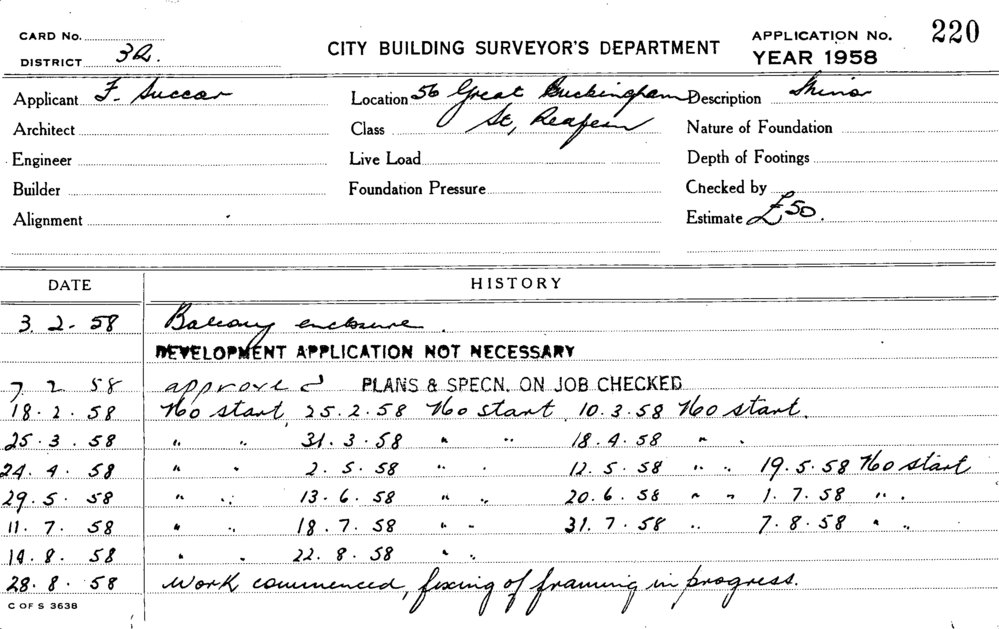 CARD No. 220
DISTRICT 3R.
CITY BUILDING SURVEYOR'S DEPARTMENT
APPLICATION No.
YEAR 1958
Applicant F. Succar Location 56 Great Buckingham Description Minor
Architect Class St, Redfern Nature of Foundation
Engineer Live Load Depth of Footings
Builder Foundation Pressure Checked by
Alignment Estimate £50.
DATE HISTORY
3. 2. 58 Balcony enclosure.
DEVELOPMENT APPLICATION NOT NECESSARY
7 2 58 approved PLANS & SPECN. ON JOB CHECKED
18. 2. 58 No start, 25. 2. 58 No start, 10. 3. 58 No start.
25. 3. 58 " " 31. 3. 58 " " 18. 4. 58 " "
24. 4. 58 " " 2. 5. 58 " " 12. 5. 58 " " 19. 5. 58 No start
29. 5. 58 " " 13. 6. 58 " " 20. 6. 58 " " 1. 7. 58 " "
11. 7. 58 " " 18. 7. 58 " " 31. 7. 58 " 7. 8. 58 " "
14. 8. 58 " " 22. 8. 58 " "
28. 8. 58 Work commenced, fixing of framing in progress.
C OF S 3638